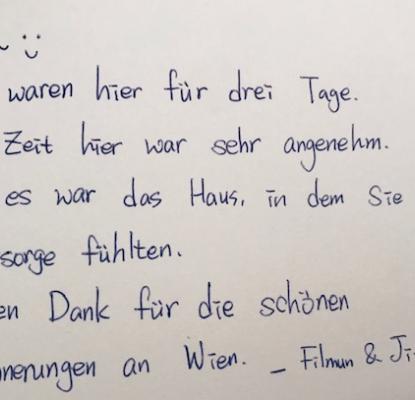 waren hier für drei Tage.
Zeit hier war sehr angenehm.
es war das Haus, in dem Sie
sorge fühlten.
en Dank für die schönen
nerungen an Wien. _ Filmun & Ji